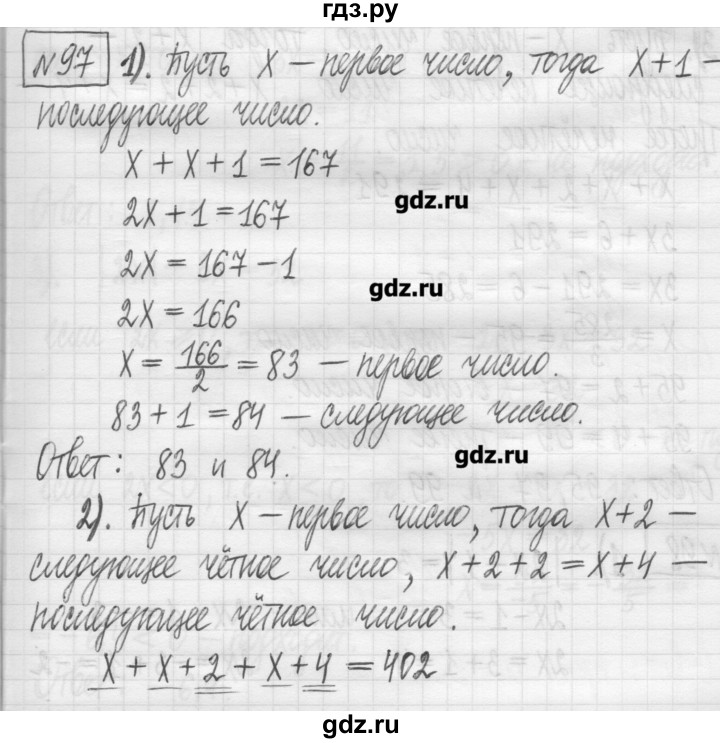 гдз.ру
№97 1). Пусть x – первое число, тогда x+1 –
последующее число.
x + x + 1 = 167
gdz.ru
2x + 1 = 167
2x = 167 – 1
gdz.ru
2x = 166
x = 166/2 = 83 – первое число.
83 + 1 = 84 – следующее число.
gdz.ru
Ответ: 83 и 84.
2). Пусть x – первое число, тогда x+2 –
следующее чётное число, x+2+2 = x+4 –
последующее чётное число.
x + x + 2 + x + 4 = 402
gdz.ru